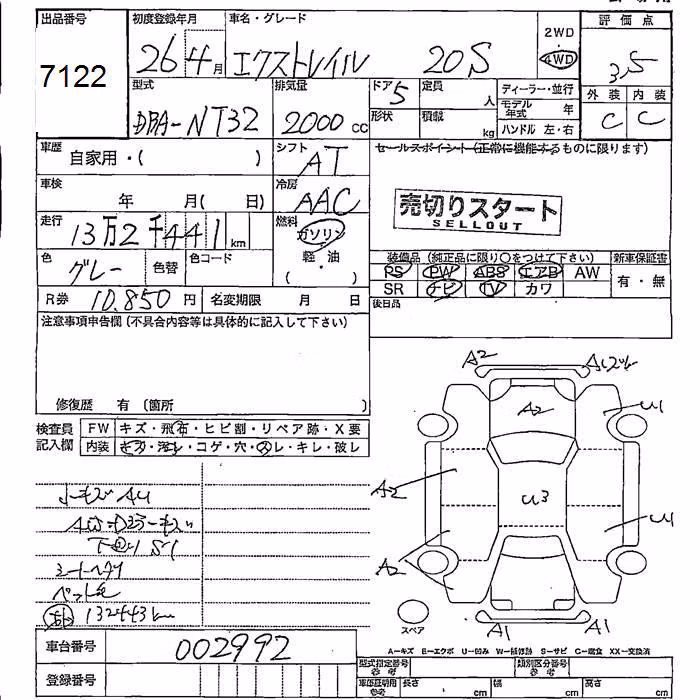 出品番号
7122
初度登録年月
26年4月
車名・グレード
エクストレイル 20S
2WD
・
4WD
評価点
3.5
型式
DBA-NT32
排気量
2000cc
ドア 5
定員 人
形状
積載 kg
ディーラー・並行
モデル年式 年
ハンドル 左・右
外装 内装
C C
車歴
自家用・( )
シフト
AT
セールスポイント(正常に機能するものに限ります)
車検
年 月( 日)
冷房
AAC
売切りスタート
SELLOUT
走行
13万2千441km
燃料
ガソリン
・
(軽・油)
色
グレー
色替
色コード
装備品(純正品に限り○をつけて下さい)
新車保証書
PS PW ABS エアB AW
SR ナビ TV カワ
有・無
R券 10.850円
名変期限 月 日
後日品
注意事項申告欄(不具合内容等は具体的に記入して下さい)
修復歴 有 (箇所 )
検査員記入欄
FW キズ・飛石・ヒビ割・リペア跡・X要
内装 キズ・汚レ・コゲ・穴・スレ・キレ・破レ
シートヘタリ
132443km
A2
A2
U1
A2
U3
U1
A2
A1
A1
スペア
A-キズ E-エクボ U-凹み W-補修跡 S-サビ C-腐食 XX-交換済
車台番号
002992
登録番号
型式指定番号
参考
類別区分番号
参考
車庫証明用
参考
長さ cm
幅 cm
高さ cm